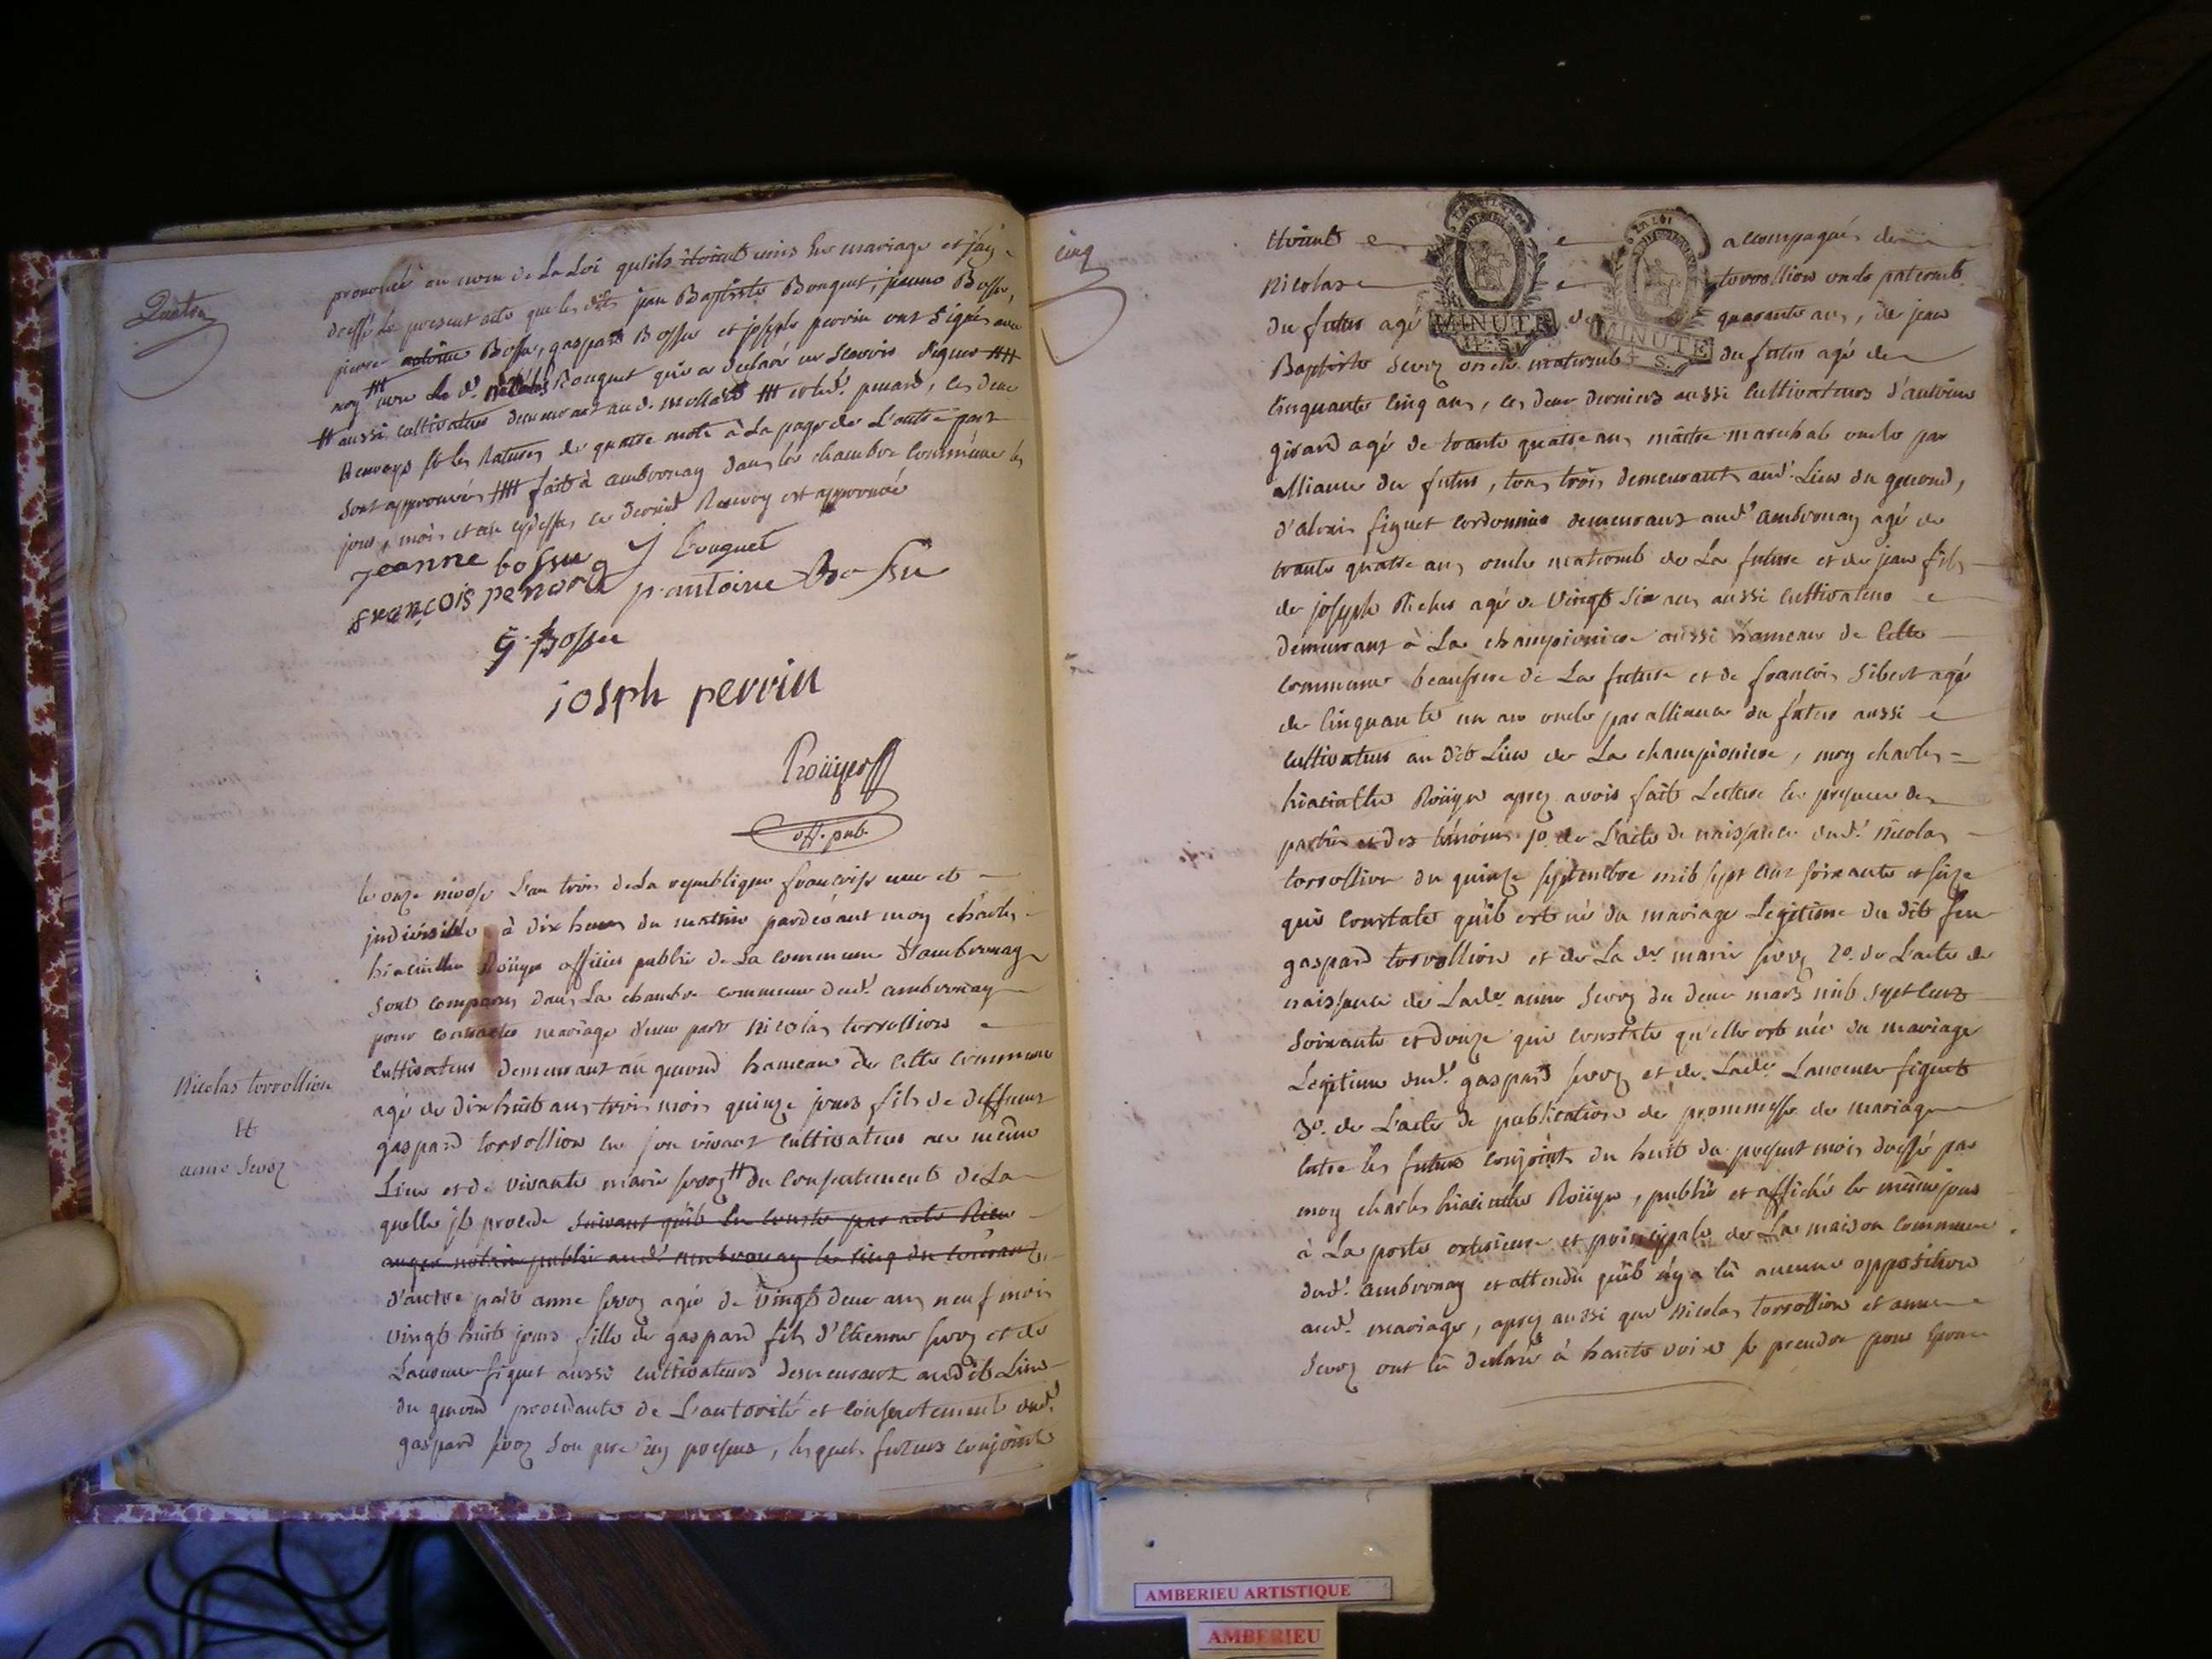 Quatre
prononcé au nom de La Loi qu'ils étoient unis en mariage et j'ay
dressé Le present acte que les dits jean Baptiste Bouguet, jeanne Bossu,
pierre antoine Bossu, gaspard Bossu et joseph perrin ont signés avec
moy non Le d. Bouguet qui a declaré ne scavoir signer
aussi cultivateur demeurant au d. mollard et led. penard, ces deux
Renvoys et les Ratures de quatre mots à La page de L'autre part
sont approuvés fait à ambronay dans la chambre commune les
jour, mois et an cydessus ce dernier Renvoy est approuvée
jeanne bossu J Bouguet
françois penard p. antoine Bossu
g. Bossu
joseph perrin
Roüyer
off. pub.
Nicolas torrollion
Et
anne Servoz
le onze nivose L'an trois de La republique francoise une et
indivisible à dix heures du matin pardevant moy charles
hiacinthe Roüyer officier public de La commune d'ambronay
sont comparus dans La chambre commune dud. ambronay
pour contracter mariage d'une part Nicolas torrollion
cultivateur demeurant au genoud hameau de cette commune
agé de dix huit ans trois mois quinze jours fils de deffunt
gaspard torrollion en son vivant cultivateur au même
Lieu et de vivante marie servoz du consentement de La
quelle il procede suivant qu'il en conste par acte Rieu
auger notaire public aud. ambronay le cinq du courant,
d'autre part anne servoz agée de vingt deux ans neuf mois
vingt huit jours fille de gaspard fils d'Etienne servoz et de
Laurence figuet aussi cultivateurs demeurant audit Lieu
du genoud procedante de L'autorité et consentement dud.
gaspard servoz son pere icy present, lesquels futurs conjoints
cinq
étoient accompagnés de
Nicolas torrollion oncle paternel
du futur agé de quarante ans, de jean
Baptiste servoz oncle maternel du futur agé de
cinquante cinq ans, ces deux derniers aussi cultivateurs d'antoine
girard agé de trante quatre ans maitre marechal oncle par
alliance du futur, tous trois demeurant aud. Lieu du genoud,
d'alexis figuet cordonnier demeurant aud. ambronay agé de
trante quatre ans oncle maternel de La future et de jean fils
de joseph Richer agé de vingt six ans aussi cultivateur
demeurant à La championiere aussi hameau de cette
commune beaufrere de La future et de francois Sibert agé
de cinquante un ans oncle par alliance du futur aussi
cultivateur au dit Lieu de La championiere, moy charles
hiacinthe Roüyer après avoir fait Lecture en presence des
parties et des temoins 1o. de L'acte de naissance dud. Nicolas
torrollion du quinze septembre mil sept cent soixante et seize
qui constate qu'il est né du mariage Legitime du dit feu
gaspard torrollion et de La de. marie servoz 2o. de L'acte de
naissance de Lade. anne servoz du deux mars mil sept cent
soixante et douze qui constate qu'elle est née du mariage
Legitime dud. gaspard servoz et de Lade. Laurence figuet
3o. de L'acte de publication de promesse de mariage
entre les futurs conjoints du huit du present mois dressé par
moy charles hiacinthe Roüyer, publié et affiché le même jour
à La porte exterieure et principale de La maison commune
dud. ambronay et attendu qu'il n'y a eû aucune opposition
aud. mariage, après aussi que Nicolas torrollion et anne
servoz ont eû declaré à haute voix se prendre pour Epoux
LA LOI
MINUTE
LA LOI
MINUTE
AMBERIEU ARTISTIQUE
AMBERIEU